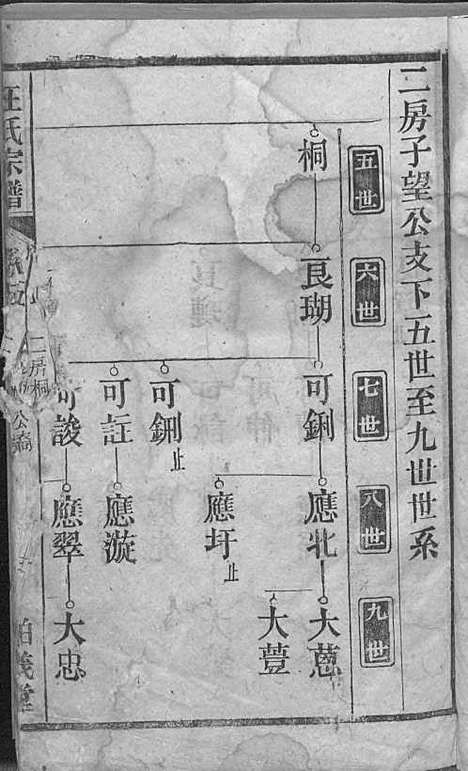 二房子望公支下五世至九世世系
五世
六世
七世
八世
九世
桐
良瑚
可鉶
應北
大蒠
大荳
應圩
止
可鉶
止
可註
應漩
可誜
應翠
大忠
汪氏宗譜
二房桐
公